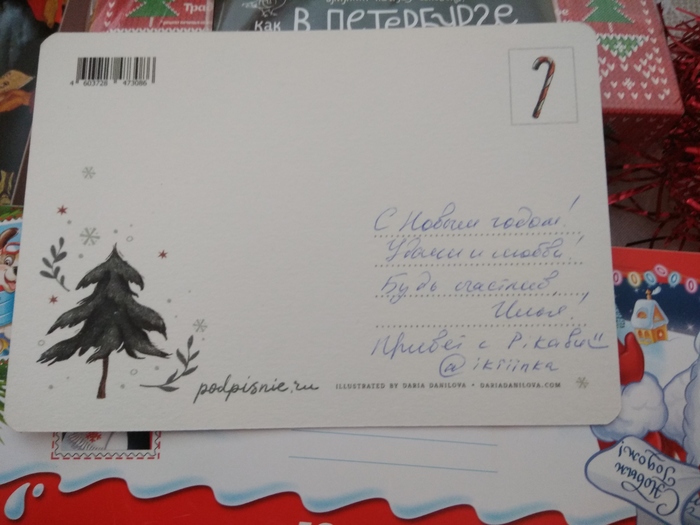 Тра
как в петербурге
4 603728 473086
С Новым годом!
Удачи и любви!
Будь счастлив,
Илья!
Привет с Р.Кавказ
@iktiinka
podpisnie.ru
ILLUSTRATED BY DARIA DANILOVA • DARIADANILOVA.COM
С Новым
Годом!